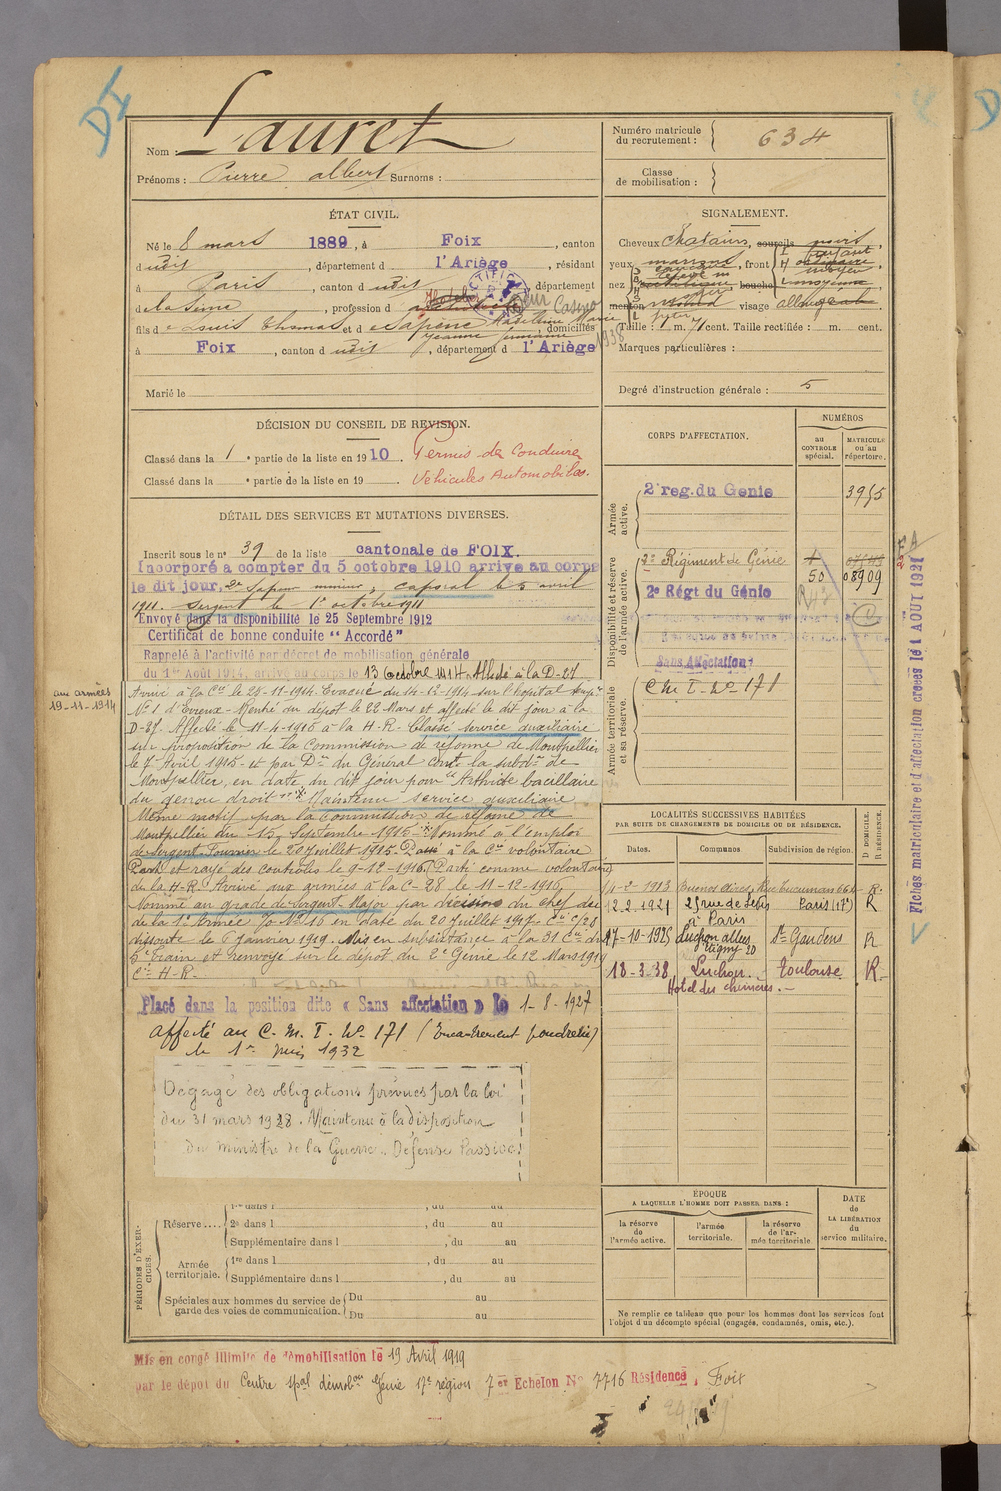 DI
Nom : Lauret
Prénoms : Pierre albert Surnoms :
Numéro matricule du recrutement : 634
Classe de mobilisation :
ÉTAT CIVIL.
Né le 8 mars 1889, à Foix, canton
dudit, département d l'Ariège, résidant
à Paris, canton dudit, département
de la Seine, profession d Casino
fils de Louis Thomas et de Sapene Madeleine Marie
Jeanne Germaine, domiciliés
à Foix, canton dudit, département d l'Ariège
1938
Marié le
SIGNALEMENT.
Cheveux Chatains, sourcils noirs,
yeux marrons, front
nez bouche
menton visage allongé
Taille : 1 m. 71 cent. Taille rectifiée : m. cent.
Marques particulières :
Degré d'instruction générale : 5
DÉCISION DU CONSEIL DE REVISION.
Classé dans la 1e partie de la liste en 1910. Permis de Conduire
Classé dans la e partie de la liste en 19 . Véhicules Automobiles.
DÉTAIL DES SERVICES ET MUTATIONS DIVERSES.
Inscrit sous le n° 39 de la liste cantonale de FOIX.
Incorporé a compter du 5 octobre 1910 arrive au corps
le dit jour, 2e Sapeur mineur, caporal le 5 avril
1911. Sergent le 1er octobre 1911
Envoyé dans la disponibilité le 25 Septembre 1912
Certificat de bonne conduite "Accordé"
Rappelé à l'activité par décret de mobilisation générale
du 1er Août 1914, arrivé au corps le 13 Octobre 1914. Affecté à la D-27
aux armées
19-11-1914
Arrivé à la Cie le 28-11-1914. Evacué du 14-12-1914 sur l'hopital temp.
N° 1 d'Evreux - Rentré du dépot le 22 Mars et affecté le dit jour à la
D-27. Affecté le 11-4-1915 à la H-R. Classé service auxiliaire
sur proposition de la Commission de réforme de Montpellier
le 7 Avril 1915 - et par Don du Général Comt la subdon de
Montpellier, en date du dit jour pour "Arthrite bacillaire
du genou droit" Maintenu service auxiliaire
Même motif par la Commission de réforme de
Montpellier du 15 Septembre 1915 - Nommé à l'emploi
de Sergent Fourrier le 20 Juillet 1915. Passé à la Cie volontaire
Parti et rayé des contrôles le 9-12-1916 (Parti comme volontaire)
de la H-R. Arrivé aux armées à la C-28 le 11-12-1916
Nommé au grade de Sergent-Major par décision du Chef du
de la 1e Armée Jo N° 16 en date du 20 Juillet 1917 - Cie C/28
dissoute le 6 Janvier 1919. Mis en subsistance à la 31 Cie du
5e Train et renvoyé sur le dépot du 2e Génie le 12 Mars 1919
Cie H-R-
Placé dans la position dite « Sans affectation » le 1-8-1927
affecté au C. M. I. N° 171 (Encadrement poudrerie)
le 1er juin 1932
Dégagé des obligations prévues par la loi
du 31 mars 1928. Maintenu à la disposition
du ministre de la Guerre. Défense Passive.
CORPS D'AFFECTATION.
NUMÉROS
au CONTROLE spécial.
MATRICULE ou au répertoire.
Armée active.
2e reg. du Genie 3955
Disponibilité et réserve de l'armée active.
2e Régiment de Génie
50 08909
2e Régt du Génie
Sans Affectation
Armée territoriale et sa réserve.
CMI N° 171
FA
Fiches matriculaire et d'affectation créées le 1 AOUT 1921
LOCALITÉS SUCCESSIVES HABITÉES
PAR SUITE DE CHANGEMENTS DE DOMICILE OU DE RÉSIDENCE.
Dates. Communes Subdivision de région. D DOMICILE. R RÉSIDENCE.
4-2-1913 Buenos Aires Rue Tucuman 664 R.
12.2.1921 25 rue de Lévis à Paris Paris (17e) R
27-10-1925 Luchon allées Etigny 20 St Gaudens R
18-3-38 Luchon. Toulouse R-
Hôtel des chimères.-
PÉRIODES D'EXERCICES.
Réserve.... 1re dans l , du au
2e dans l , du au
Supplémentaire dans l , du au
Armée territoriale. 1re dans l , du au
Supplémentaire dans l , du au
Spéciales aux hommes du service de garde des voies de communication. Du au
Du au
ÉPOQUE
A LAQUELLE L'HOMME DOIT PASSER DANS :
la réserve de l'armée active.
l'armée territoriale.
la réserve de l'armée territoriale.
DATE DE LA LIBÉRATION du service militaire.
Ne remplir ce tableau que pour les hommes dont les services font
l'objet d'un décompte spécial (engagés, condamnés, omis, etc.).
Mis en congé illimité de démobilisation le 19 Avril 1919
par le dépot du Centre spal démobon Génie 17e région 7er Echelon N° 7716 Résidence, Foix